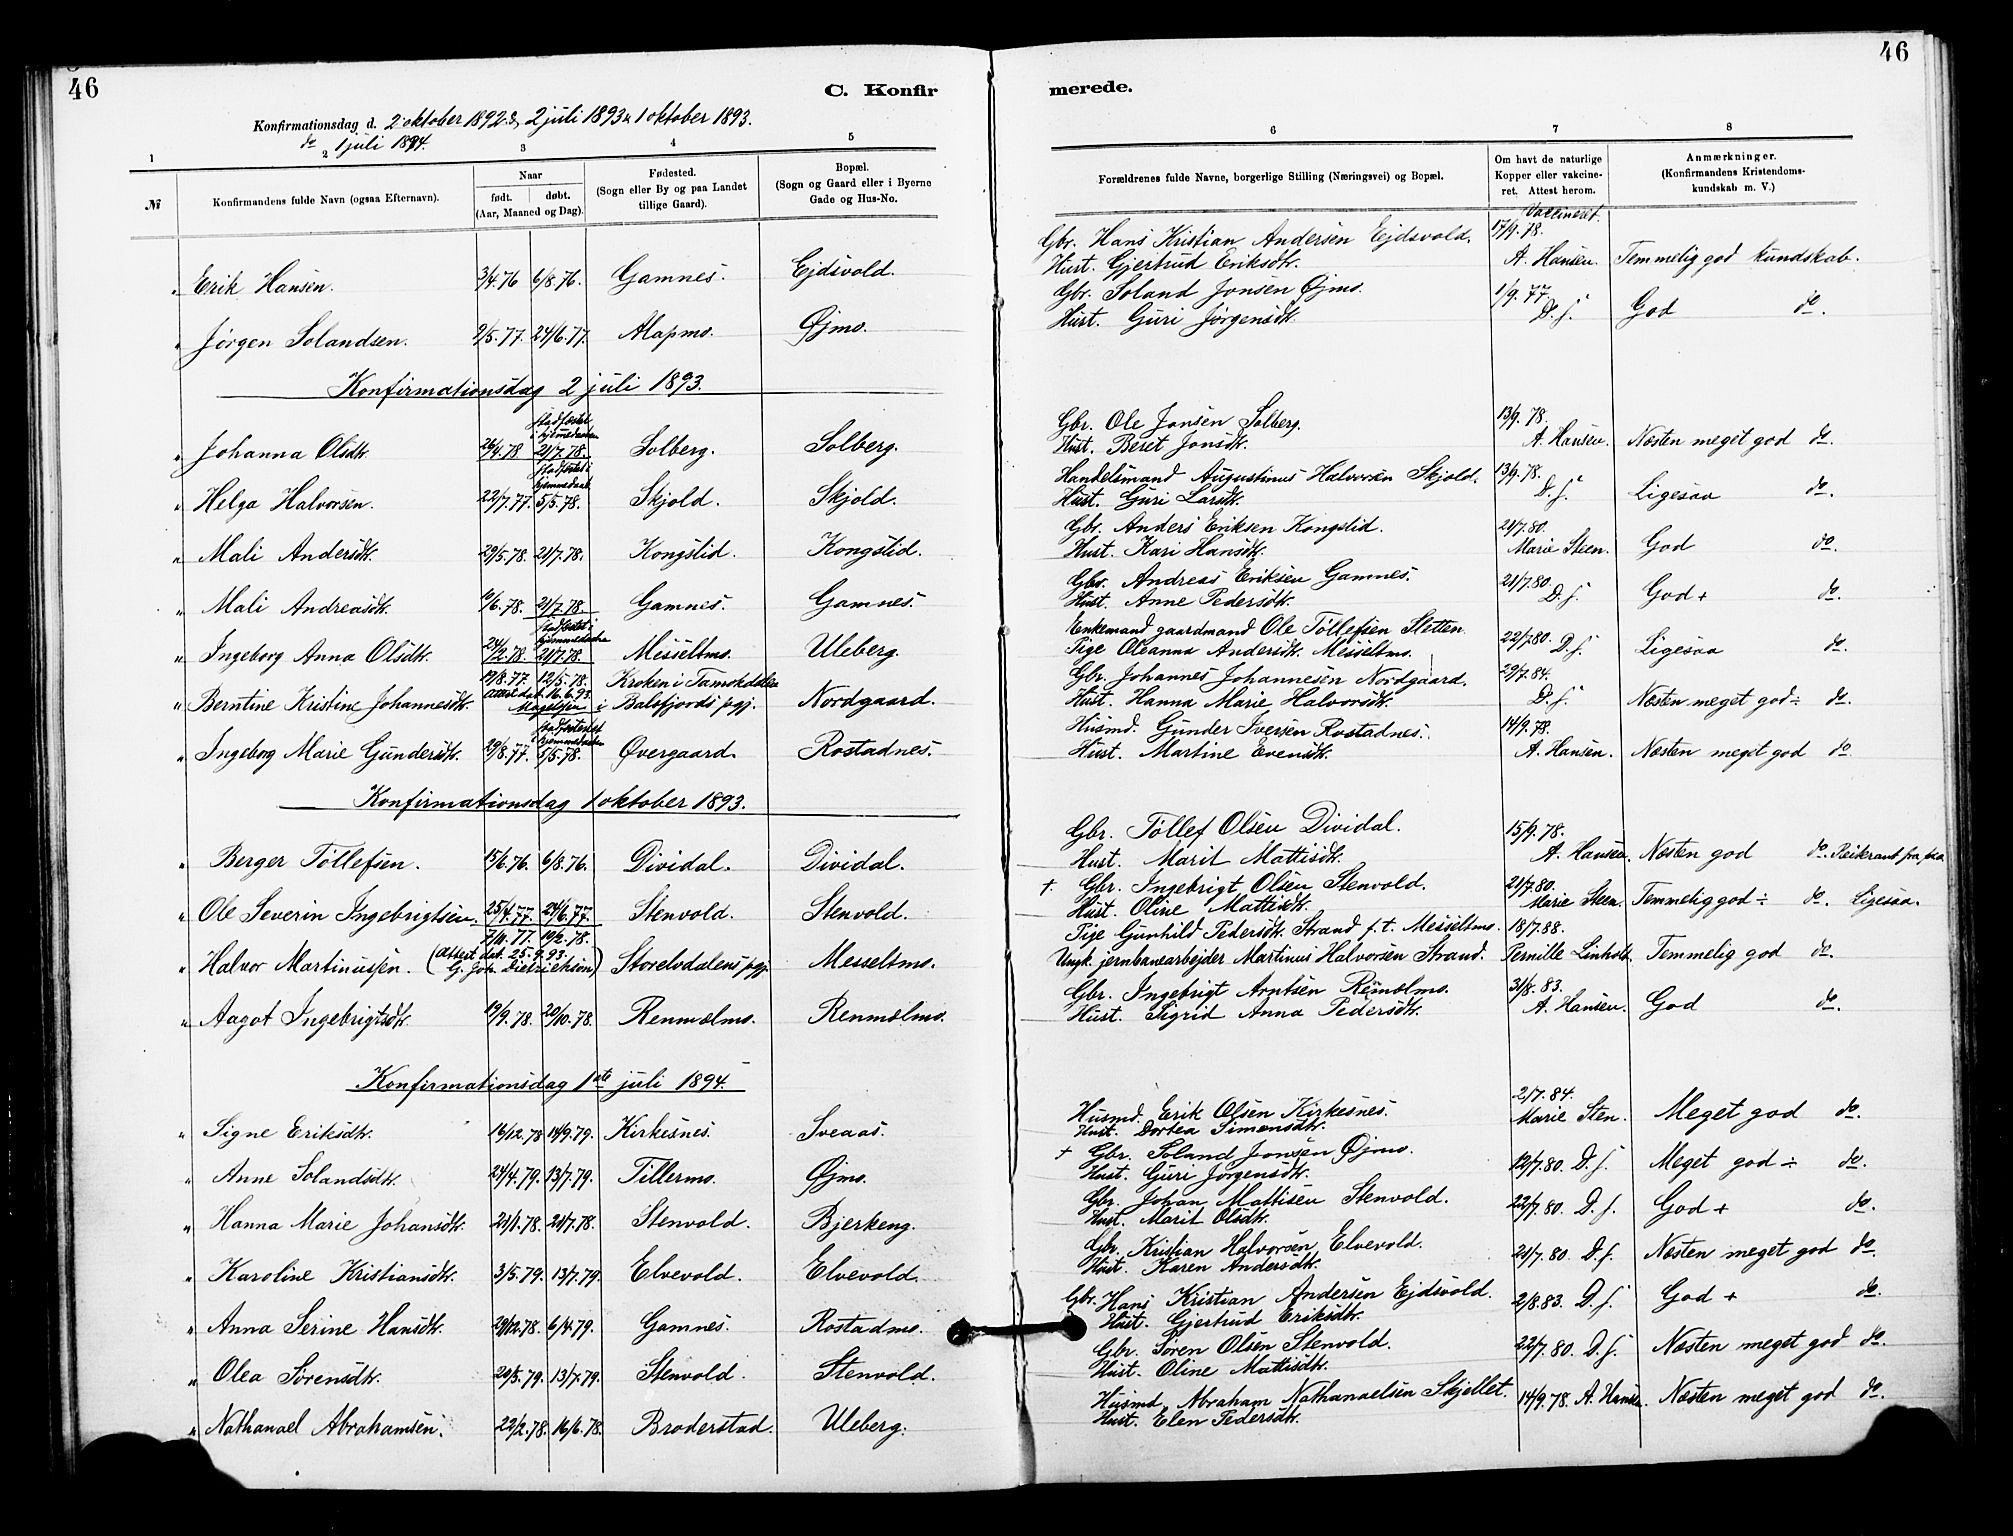 46
C. Konfir
Konfirmationsdag d. 2 oktober 1892 & 2 juli 1893 & 1 oktober 1893.
do 1 juli 1894.
1 2 3 4 5
№ Konfirmandens fulde Navn (ogsaa Efternavn). Naar født. døbt. (Aar, Maaned og Dag). Fødested. (Sogn eller By og paa Landet tillige Gaard). Bopæl. (Sogn og Gaard eller i Byerne Gade og Hus-No.
" Erik Hansen. 3/4.76 6/8.76. Gamnes. Ejdsvold.
" Jørgen Solandsen. 2/5.77. 24/6.77. Alapmo. Øjmo.
Konfirmationsdag 2 juli 1893.
stadfæstet i hjemmedaaben
" Johanna Olsdtr. 26/4.78 21/7.78. Solberg. Solberg.
stadfæstet i hjemmedaab
" Helga Halvorsen. 22/7.77. 5/5.78. Skjold. Skjold.
" Mali Andersdtr. 29/5.78. 21/7.78. Kongslid. Kongslid.
" Mali Andreasdtr. /6.78. 21/7.78. Gamnes. Gamnes.
stadfæstet i hjemmedaaben
" Ingeborg Anna Olsdtr. 24/2.78. 21/7.78. Messeltmo. Uleberg.
19/8.77. 12/5.78. Kroken i Tamokdalen
" Berntine Kristine Johannesdtr. Attest dat. 16.6.93. i Balsfjords pgj. Nordgaard.
stadfæstet hjemmedaaben
" Ingeborg Marie Gundersdtr. 29/8.77. 5/5.78. Øvergaard. Rostadnes.
Konfirmationsdag 1 oktober 1893.
" Berger Tøllefsen. 15/6.76. 6/8.76. Dividal. Dividal.
" Ole Severin Ingebrigtsen. 25/4.77. 24/6.77. Stenvold. Stenvold.
7/11.77. 10/2.78.
" Halvor Martinussen. (Attest dat. 25.9.93. G. Joh. Dietrichson) Storelvdalens pgj. Messeltmo.
" Aagot Ingebrigtsdtr. 19/9.78. 20/10.78. Renmælmo. Renmælmo.
Konfirmationsdag 1ste juli 1894.
" Signe Eriksdtr. 16/12.78 14/9.79. Kirkesnes. Sveaas.
" Anne Solandsdtr. 24/4.79. 13/7.79. Tillermo. Øjmo.
" Hanna Marie Johansdtr. 21/1.78. 21/7.78. Stenvold. Bjerkeng.
" Karoline Kristiansdtr. 3/5.79. 13/7.79. Elvevold. Elvevold.
" Anna Serine Hansdtr. 29/12.78. 6/4.79. Gamnes. Rostadmo.
" Olea Sørensdtr. 20/5.79. 13/7.79. Stenvold. Stenvold.
" Nathanael Abrahamsen. 22/2.78. 16/6.78. Broderstad. Uleberg.
46
merede.
6 7 8
Forældrenes fulde Navne, borgerlige Stilling (Næringsvei) og Bopæl. Om havt de naturlige Kopper eller vakcineret. Attest herom. Anmærkninger. (Konfirmandens Kristendomskundskab m. V.)
Vaccineret.
Gbr. Hans Kristian Andersen Ejdsvold. 17/9.78.
Hust. Gjertrud Eriksdtr. A. Hansen. Temmelig god kundskab.
Gbr. Soland Jonsen Øjmo. 1/9.77.
Hust. Guri Jørgensdtr. D. s. God do.
Gbr. Ole Jonsen Solberg. 13/9.78.
Hust. Beret Jonsdtr. A. Hansen. Næsten meget god do.
Handelsmand Augustinus Halvorsen Skjold. 13/9.78.
Hust. Guri Larsdtr. D. s. Ligesaa do.
Gbr. Anders Eriksen Kongslid. 21/7.80.
Hust. Kari Hansdtr. Marie Steen. God do.
Gbr. Andreas Eriksen Gamnes. 21/7.80.
Hust. Anne Pedersdtr. D. s. God + do.
Enkemand gaardmand Ole Tøllefsen Sletten
Pige Oleanna Andersdtr. Messeltmo. 22/7.80. D. s. Ligesaa do.
Gbr. Johannes Johannesen Nordgaard. 29/7.84.
Hust. Hanna Marie Halvorsdtr. D. s. Næsten meget god ÷ do.
Husmd. Gunder Iversen Rostadnes. 14/9.78.
Hust. Martine Evensdtr. A. Hansen. Næsten meget god do
Gbr. Tøllef Olsen Dividal. 15/9.78.
Hust. Marit Mattisdtr. A. Hansen. Næsten god do.
† Gbr. Ingebrigt Olsen Stenvold. 21/7.80.
Hust. Oline Mattisdtr. Marie Steen. Temmelig god ÷ do. Ligesaa.
Pige Gunhild Pedersdtr. Strand f. t. Messeltmo. 18/7.88.
Ungk. jernbanearbejder Martinus Halvorsen Strand. Pernille Linholt. Temmelig god do.
Gbr. Ingebrigt Arntsen Renmælmo. 31/8.83.
Hust. Sigrid Anna Pedersdtr. A. Hansen. God do.
2/7.84.
Husmd. Erik Olsen Kirkesnes. Marie Sten. Meget god do.
Hust. Dortea Simonsdtr.
† Gbr. Soland Jonsen Øjmo.
Hust. Guri Jørgensdtr. 12/7.80. D. s. Meget god ÷ do.
Gbr. Johan Mattisen Stenvold.
Hust. Marit Olsdtr. 22/7.80. D. s. God + do.
Gbr. Kristian Halvorsen Elvevold.
Hust. Karen Andersdtr. 21/7.80. D. s. Næsten meget god do.
Gbr. Hans Kristian Andersen Ejdsvold.
Hust. Gjertrud Eriksdtr. 2/8.83. D. s. God + do.
Gbr. Søren Olsen Stenvold.
Hust. Oline Mattisdtr. 22/7.80. D. s. Næsten meget god do.
Husmd. Abraham Nathanaelsen Skjellet.
Hust. Elen Pedersdtr. 14/9.78. A. Hansen. Næsten meget god do.